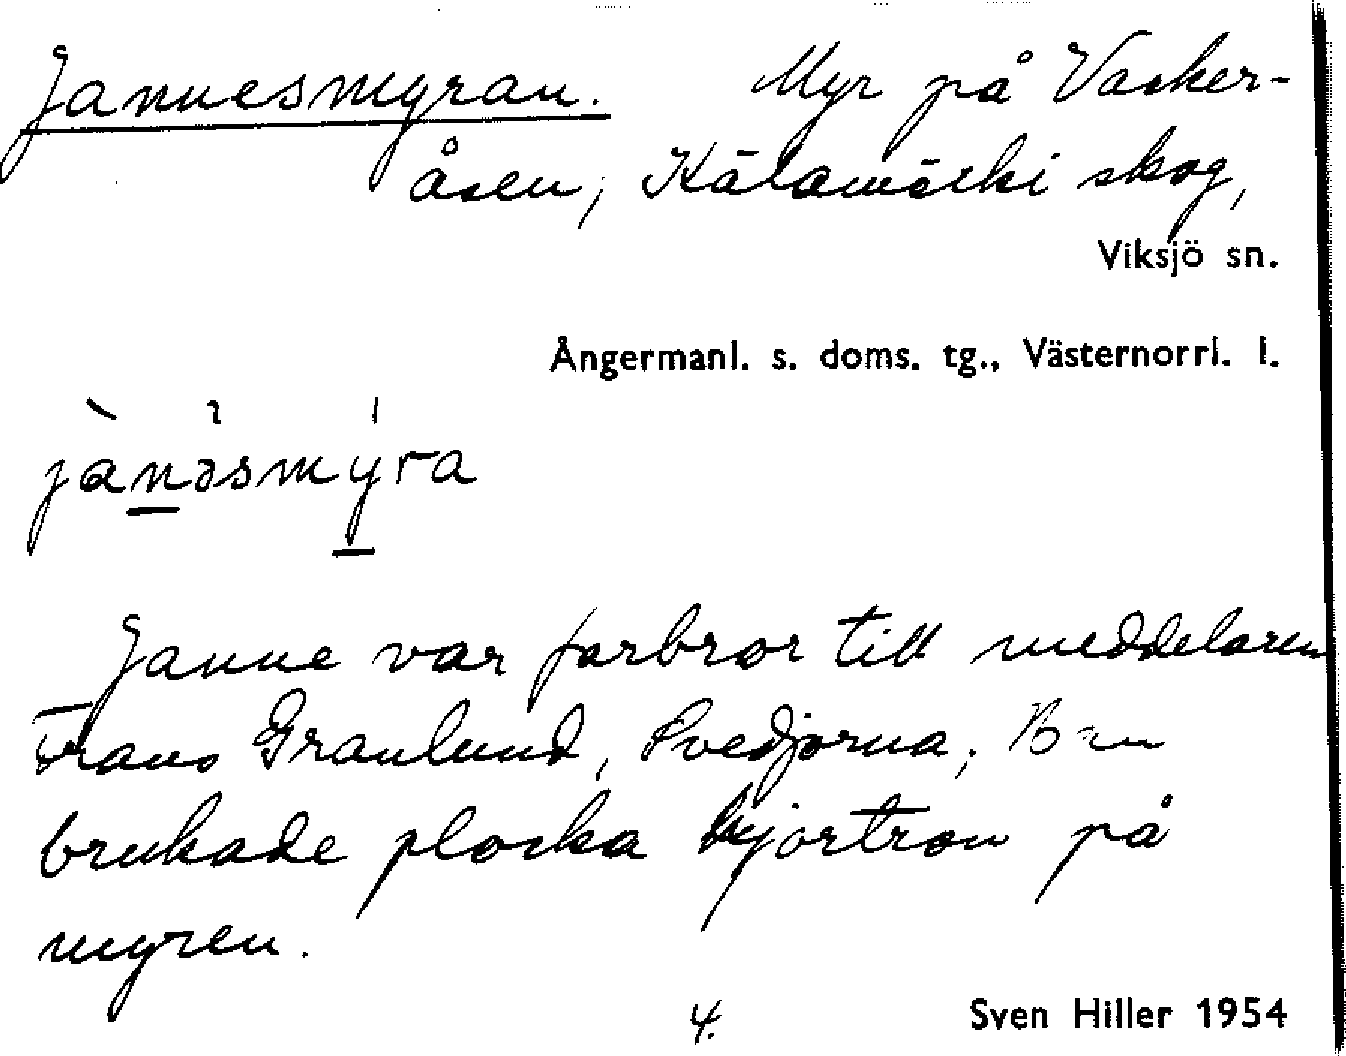 Jannesmyran. Myr på Vacker-
åsen, Kälamärki skog,
Viksjö sn.
Ångermanl. s. doms. tg., Västernorrl. l.
jànəsmýra
Janne var farbror till meddelaren
Frans Granlund, Svedjorna;
brukade plocka hjortron på
myren.
4. Sven Hiller 1954